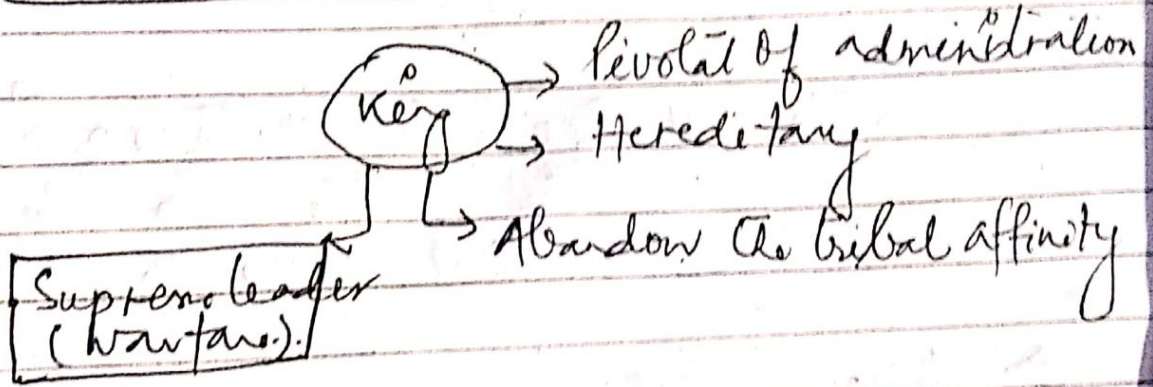 King
Pivotal of administration
Hereditary
Abandon the tribal affinity
Supreme leader
(warfare).